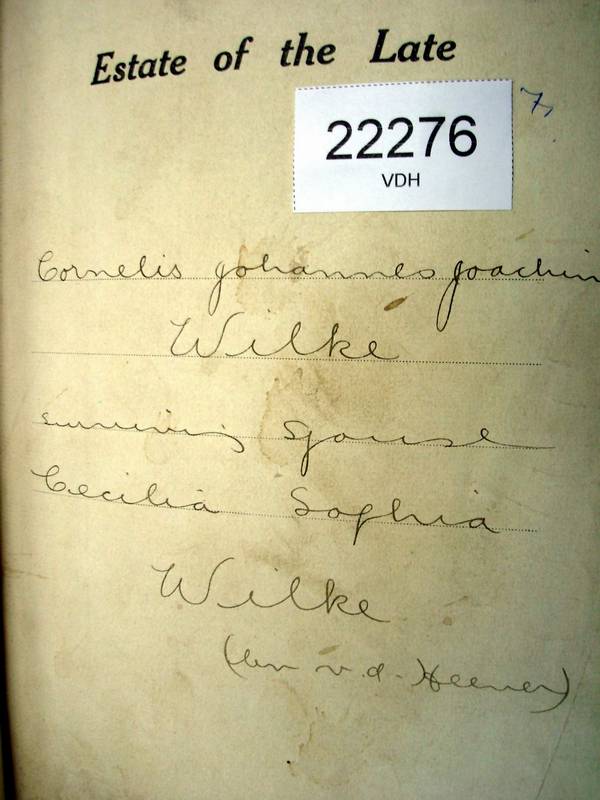 Estate of the Late
22276
VDH
7,
Cornelis Johannes Joachim
Wilke
surviving spouse
Cecilia Sophia
Wilke
(born v.d. Heever)